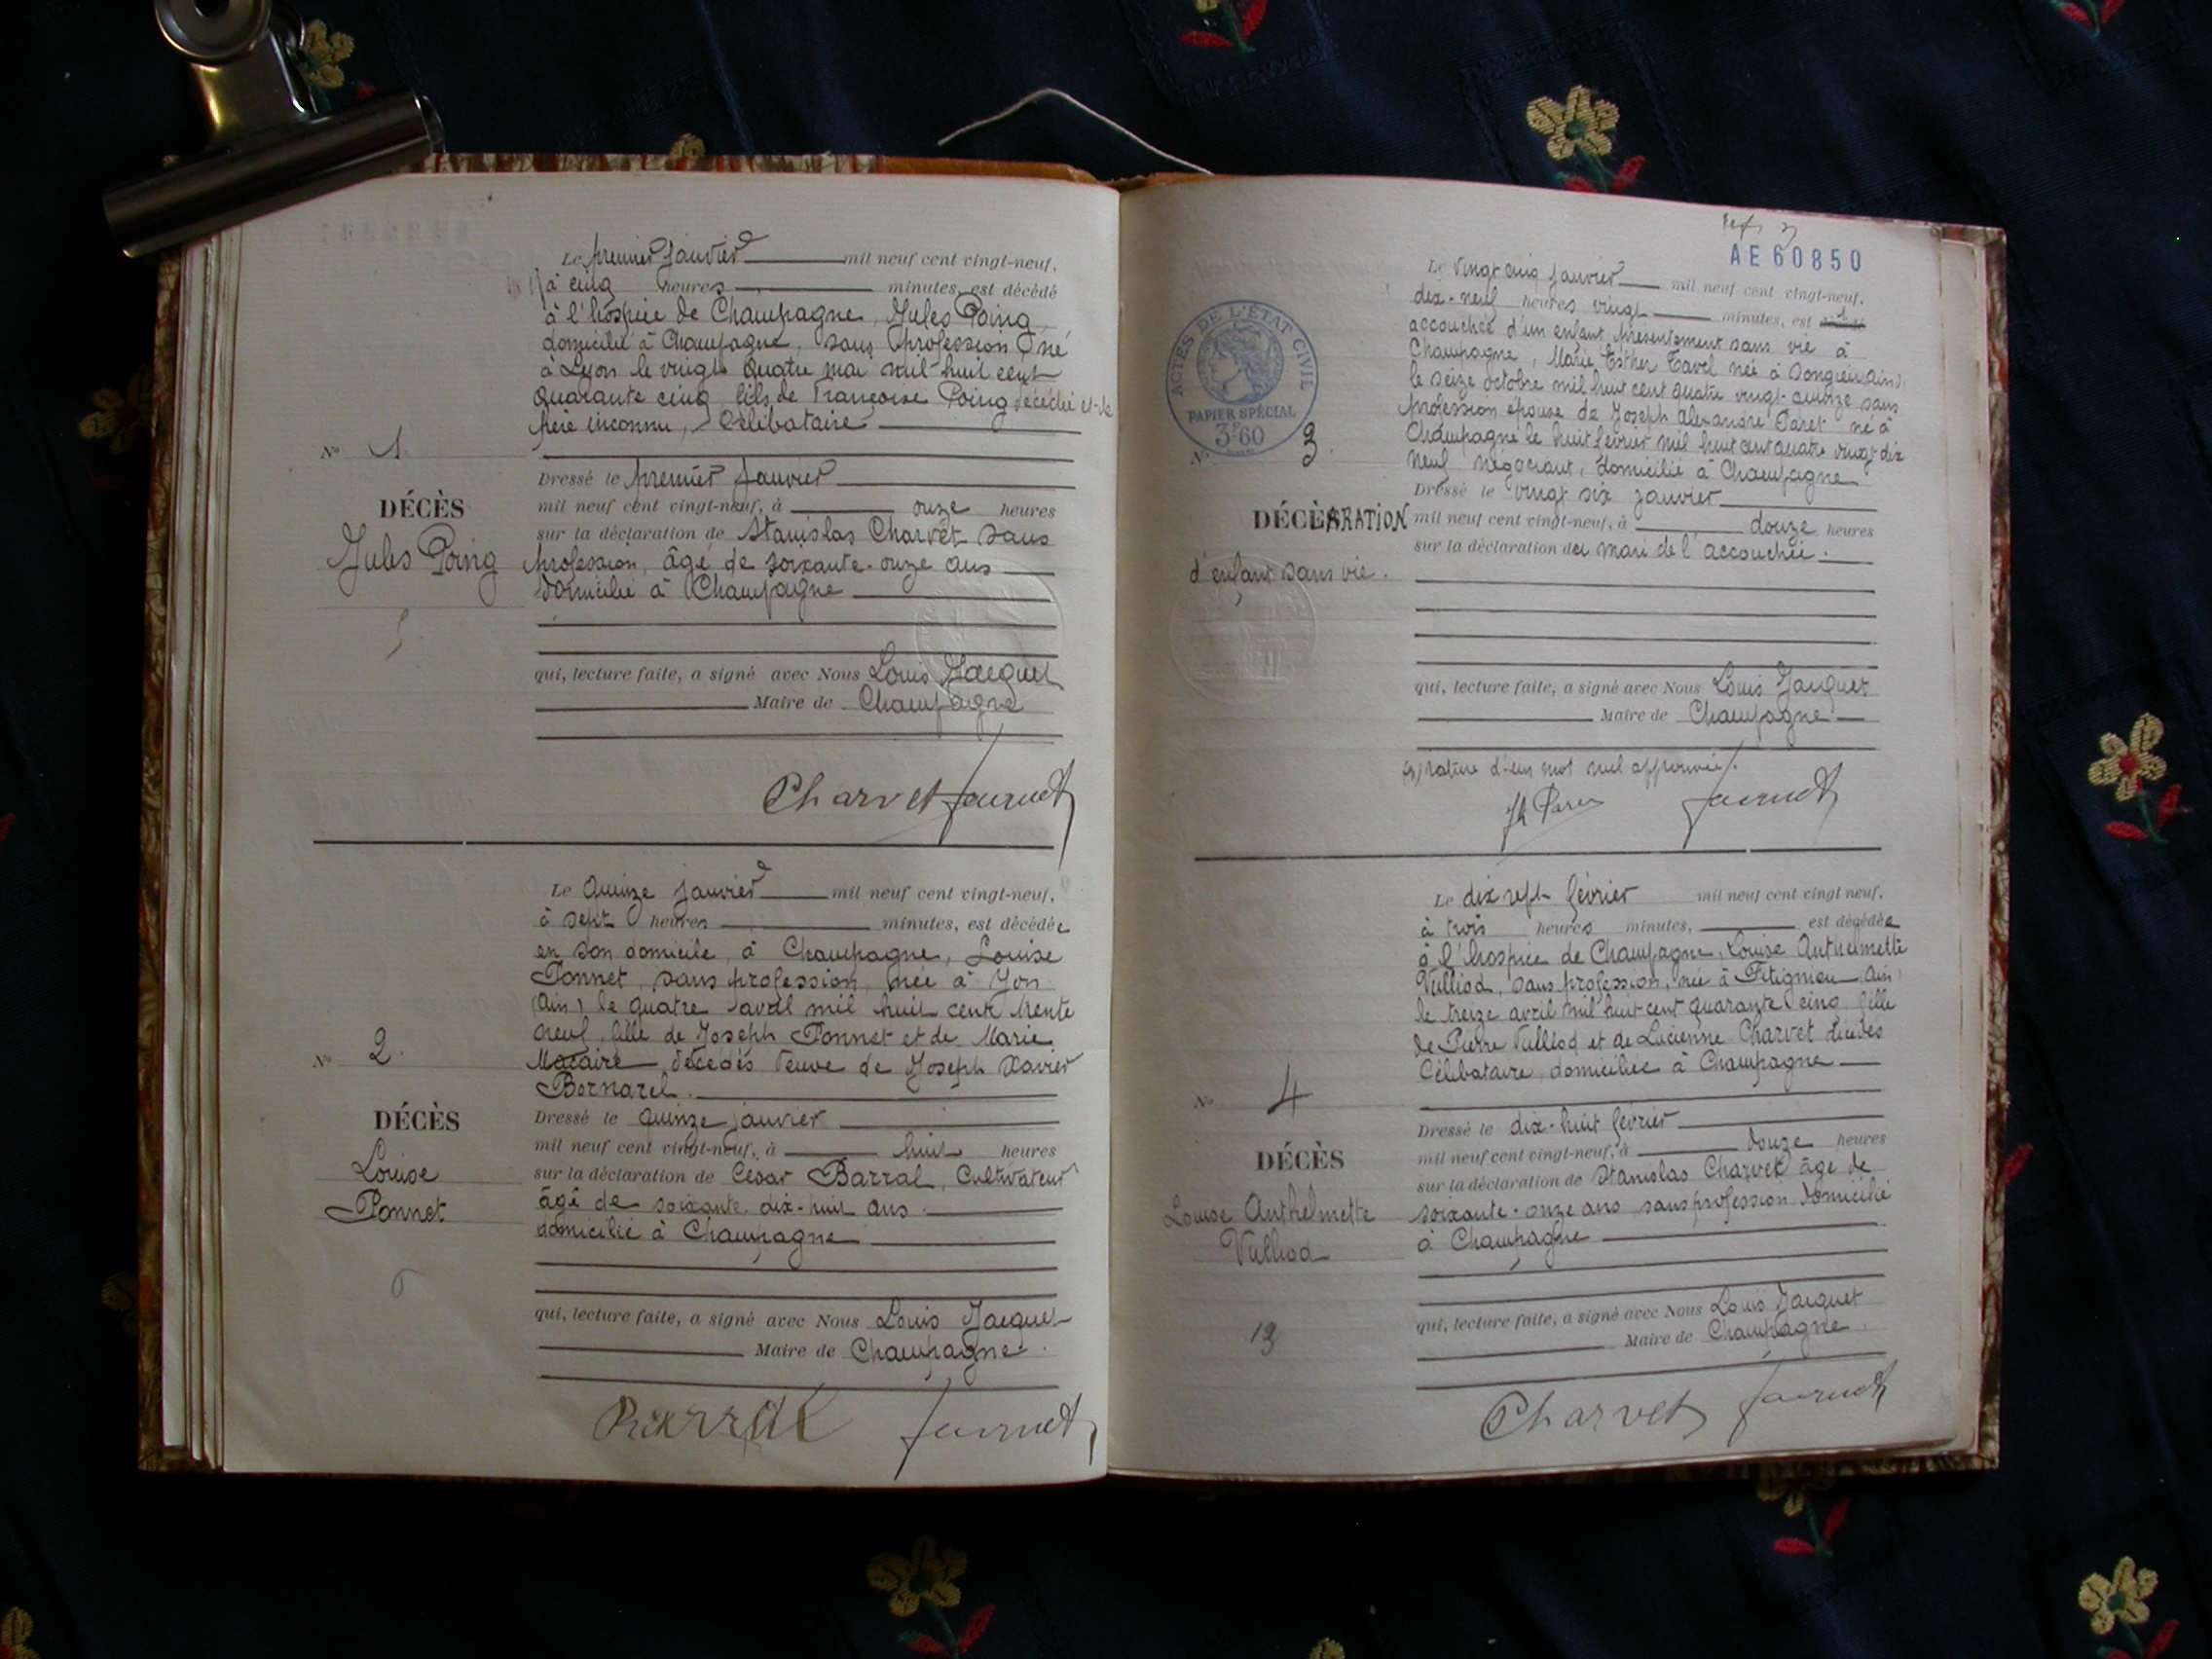 Le premier janvier mil neuf cent vingt-neuf,
à cinq heures minutes, est décédé
à l'hospice de Champagne, Jules Poing,
domicilié à Champagne, sans profession né
à Lyon le vingt quatre mai mil-huit cent
quarante cinq, fils de Françoise Poing décédée et de
père inconnu, Célibataire
N° 1.
Dressé le premier janvier
DÉCÈS
mil neuf cent vingt-neuf, à onze heures
sur la déclaration de Stanislas Charvet sans
Jules Poing
profession, âgé de soixante-onze ans
domicilié à Champagne
qui, lecture faite, a signé avec Nous Louis Jacquet
Maire de Champagne
Charvet Jacquet
Le quinze janvier mil neuf cent vingt-neuf,
à sept heures minutes, est décédée
en son domicile, à Champagne, Louise
Ponnet, sans profession, née à Yon
(Ain) le quatre avril mil huit cent trente
neuf, fille de Joseph Ponnet et de Marie
N° 2.
Macaire, décédés Veuve de Joseph Xavier
Bornarel.
DÉCÈS
Dressé le quinze janvier
mil neuf cent vingt-neuf, à huit heures
Louise
sur la déclaration de César Barral, Cultivateur
Ponnet
âgé de soixante-dix-huit ans.
domicilié à Champagne
6
qui, lecture faite, a signé avec Nous Louis Jacquet
Maire de Champagne.
Barral Jacquet
AE 60850
ACTES DE L'ÉTAT CIVIL
PAPIER SPÉCIAL
3F60
Le vingt cinq janvier mil neuf cent vingt-neuf.
dix-neuf heures vingt minutes, est
accouchée d'un enfant présentement sans vie à
Champagne, Marie Esther Tavel née à Songieu (Ain),
le seize octobre mil huit cent quatre vingt-quinze sans
profession épouse de Joseph Alexandre Paret né à
Champagne le huit février mil huit cent quatre vingt-dix
N° 3.
neuf négociant, domicilié à Champagne
Dressé le vingt six janvier
DÉCLARATION
mil neuf cent vingt-neuf, à douze heures
sur la déclaration du mari de l'accouchée.
d'enfant sans vie.
qui, lecture faite, a signé avec Nous Louis Jacquet
Maire de Champagne
rature d'un mot nul approuvée.
Jh Paret Jacquet
Le dix sept février mil neuf cent vingt neuf.
à trois heures minutes, est décédée
à l'hospice de Champagne, Louise Anthelmette
Vulliod, sans profession, née à Fitignieu (Ain)
le treize avril mil huit-cent quarante cinq fille
de Pierre Vulliod et de Lucienne Charvet décédés
Célibataire, domiciliée à Champagne
N° 4
Dressé le dix-huit février
DÉCÈS
mil neuf cent vingt-neuf, à douze heures
sur la déclaration de Stanislas Charvet âgé de
Louise Anthelmette
soixante-onze ans sans profession domicilié
Vulliod
à Champagne
qui, lecture faite, a signé avec Nous Louis Jacquet
Maire de Champagne.
Charvet Jacquet